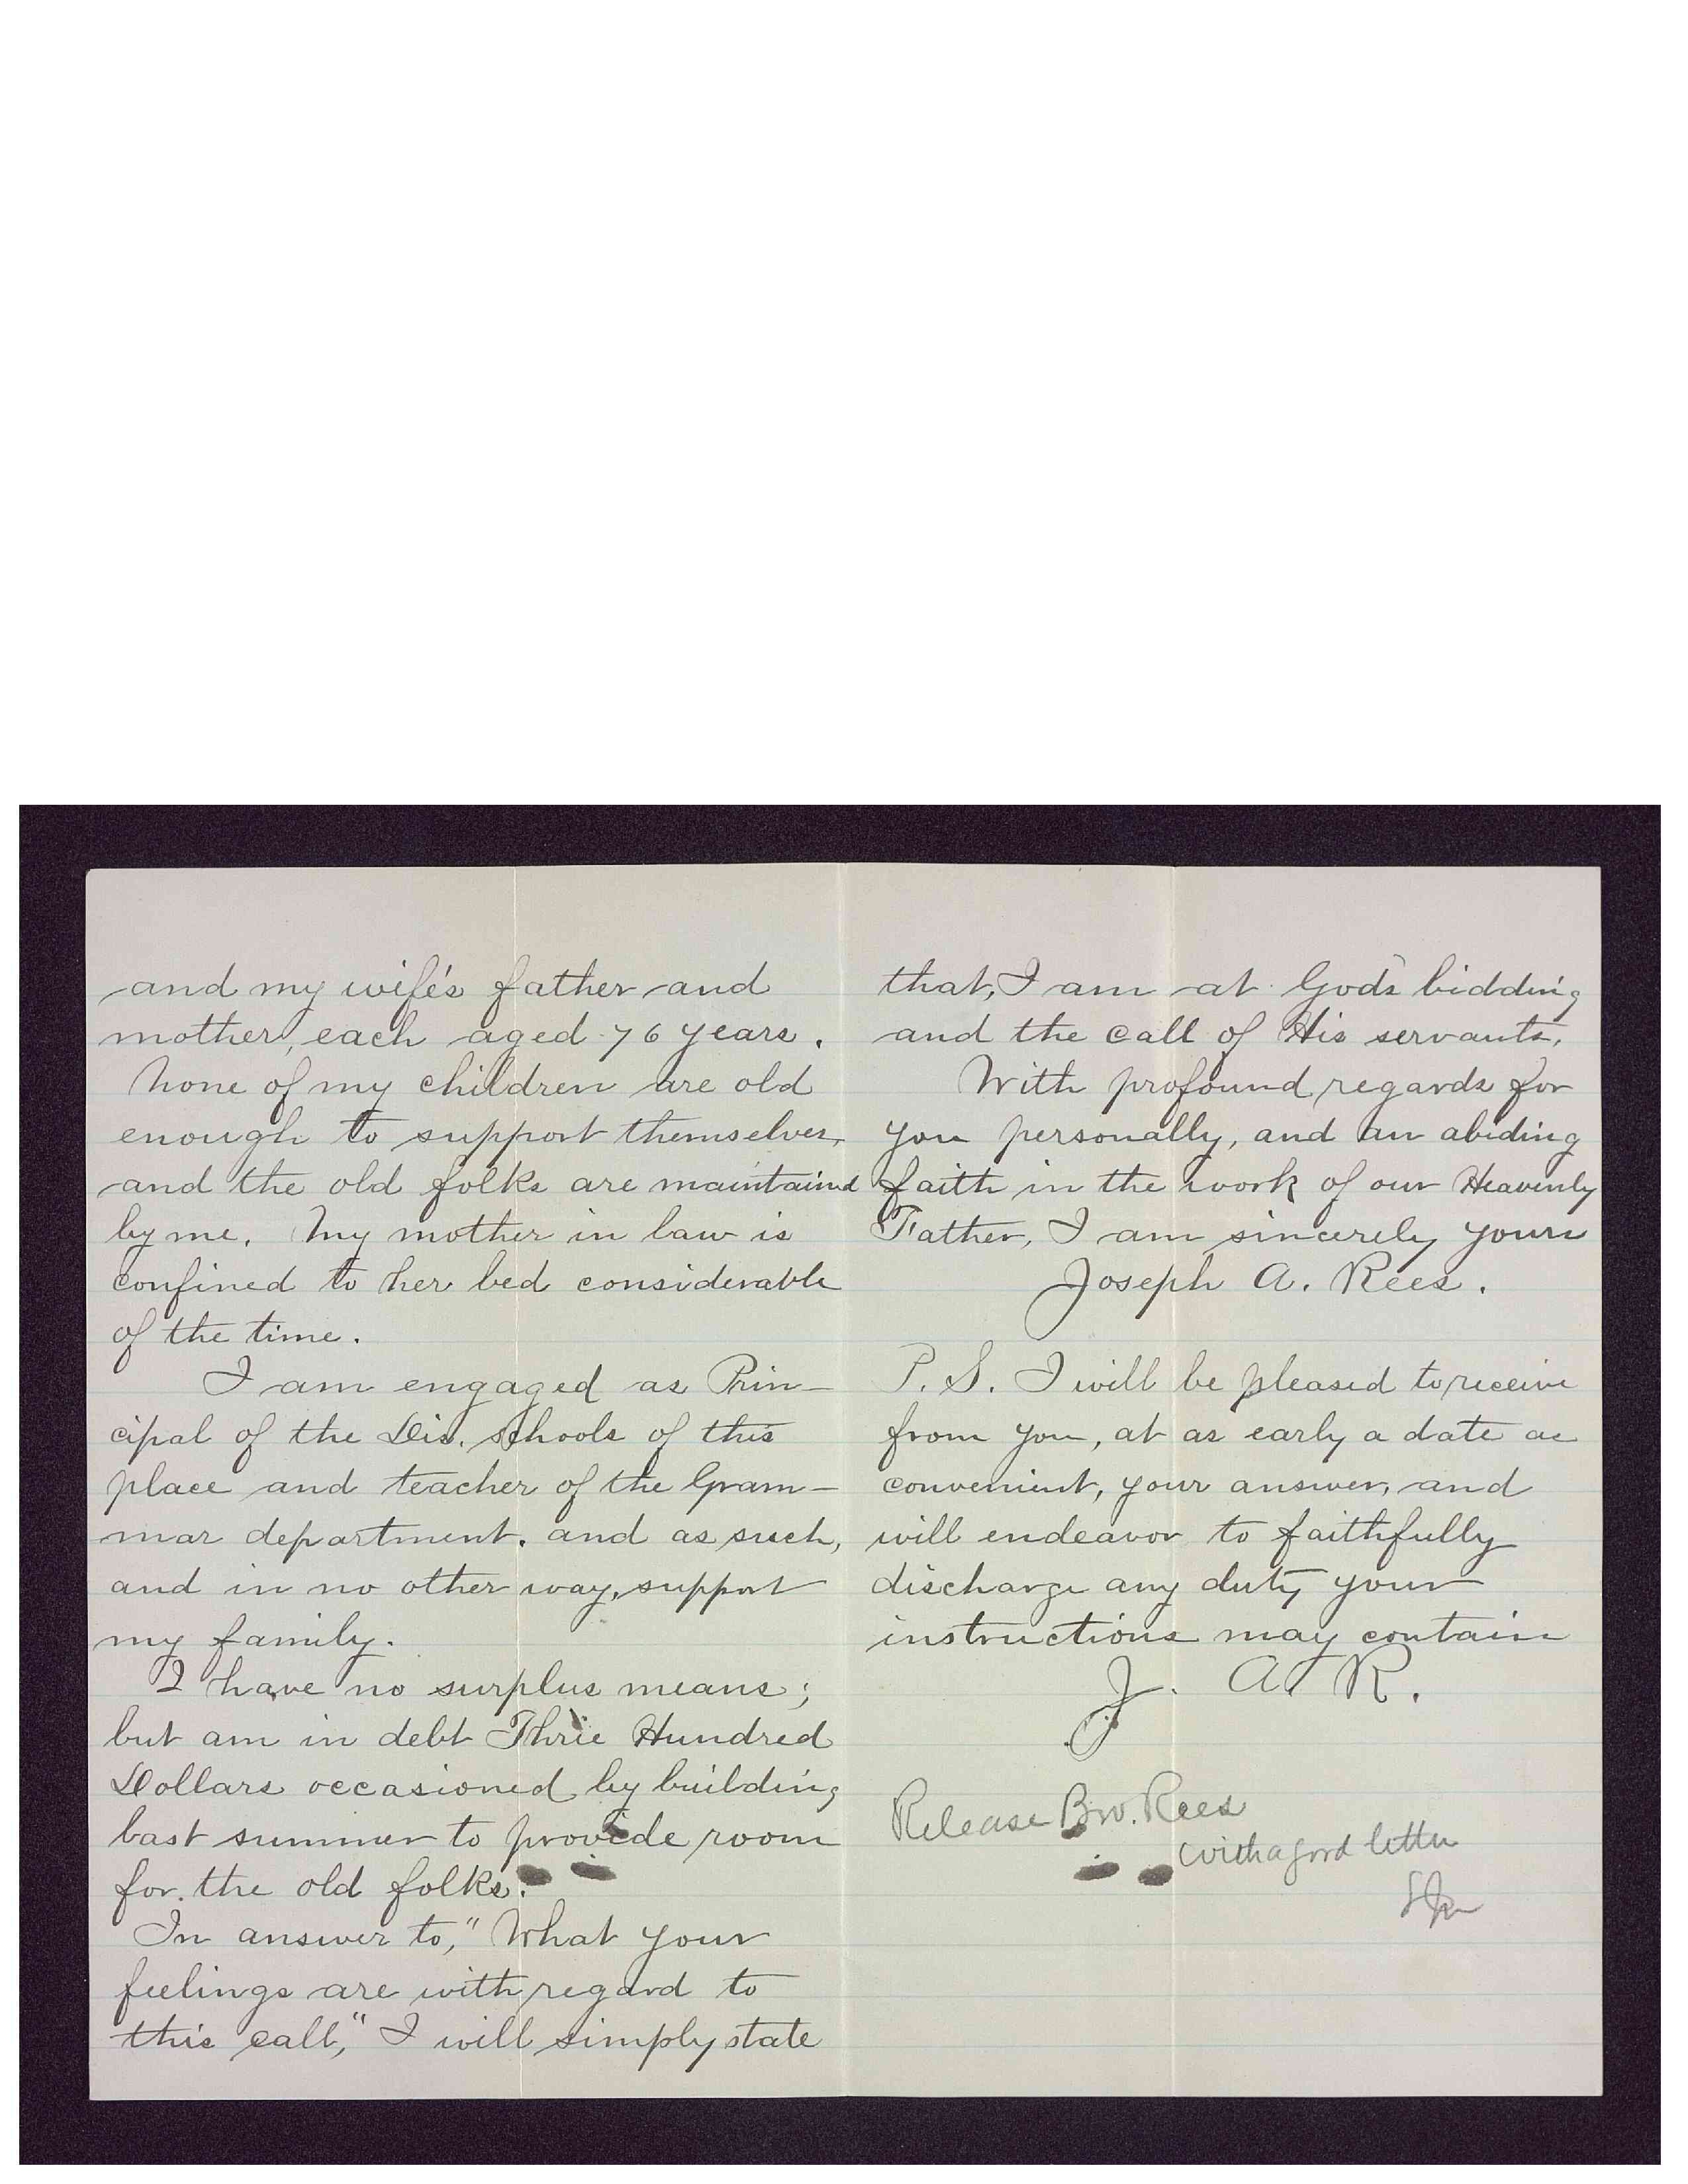 and my wife's father and
mother, each aged 76 years.
None of my children are old
enough to support themselves,
and the old folks are maintained
by me. My mother in law is
confined to her bed considerable
of the time.
I am engaged as Prin-
cipal of the Dis. schools of this
place and teacher of the Gram-
mar department. and as such,
and in no other way, support
my family.
I have no surplus means;
but am in debt Three Hundred
Dollars occasioned by building
last summer to provide room
for the old folks.
In answer to, "What your
feelings are with regard to
this call," I will simply state
that, I am at God's bidding
and the call of His servants.
With profound regards for
you personally, and an abiding
faith in the work of our Heavenly
Father, I am sincerely yours
Joseph A. Rees.
P. S. I will be pleased to receive
from you, at as early a date as
convenient, your answer, and
will endeavor to faithfully
discharge any duty your
instructions may contain
J. A. R.
Release Bro. Rees
with a good letter